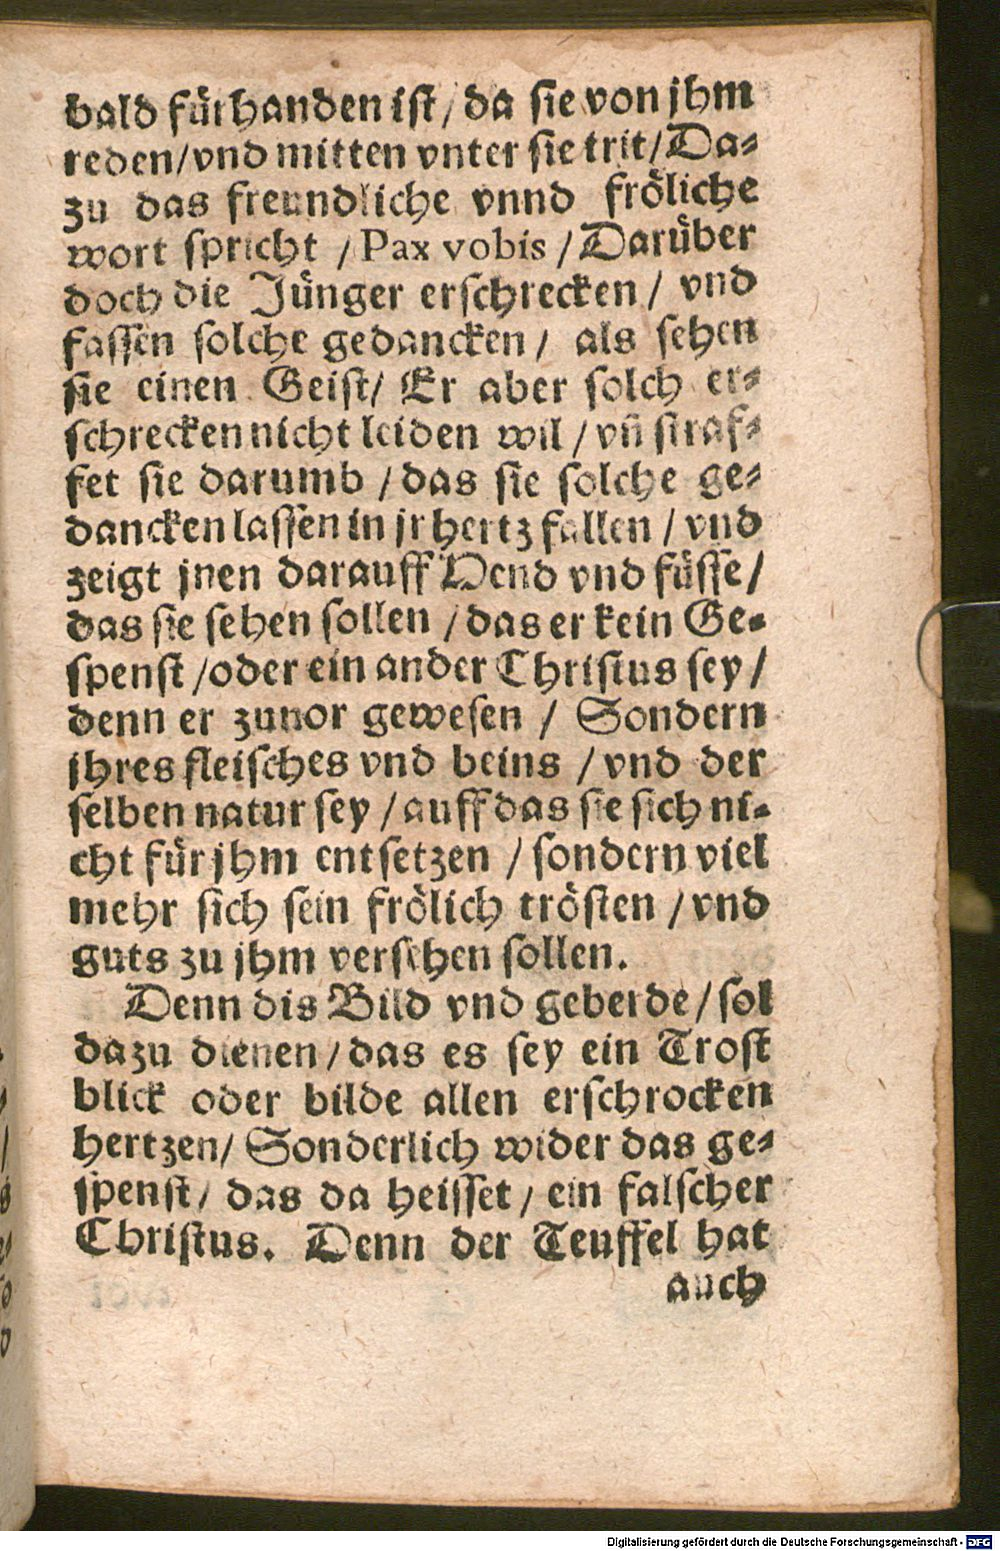 bald fürhanden ist / da sie von jhm
reden / vnd mitten vnter sie trit / Da-
zu das freundliche vnnd fröliche
wort spricht / Pax vobis / Darüber
doch die Jünger erschrecken / vnd
fassen solche gedancken / als sehen
sie einen Geist / Er aber solch er-
schrecken nicht leiden wil / vñ straf-
fet sie darumb / das sie solche ge-
dancken lassen in jr hertz fallen / vnd
zeigt jnen darauff Hend vnd füsse /
das sie sehen sollen / das er kein Ge-
spenst / oder ein ander Christus sey /
denn er zuuor gewesen / Sondern
jhres fleisches vnd beins / vnd der
selben natur sey / auff das sie sich ni-
cht für jhm entsetzen / sondern viel
mehr sich sein frölich trösten / vnd
guts zu jhm versehen sollen.
Denn dis Bild vnd geberde / sol
dazu dienen / das es sey ein Trost
blick oder bilde allen erschrocken
hertzen / Sonderlich wider das ge-
spenst / das da heisset / ein falscher
Christus. Denn der Teuffel hat
auch
Digitalisierung gefördert durch die Deutsche Forschungsgemeinschaft - DFG